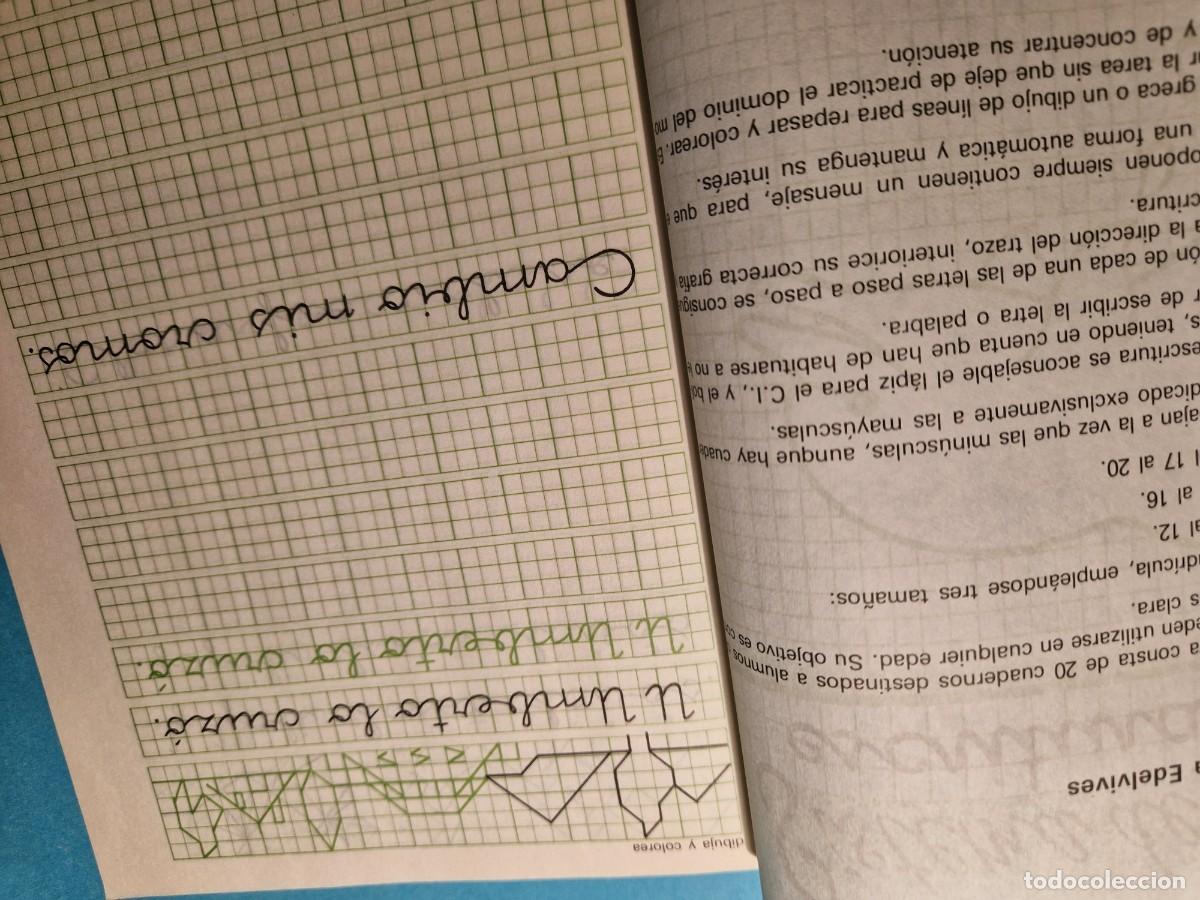 dibuja y colorea
U Umberto lo cruzó.
U Umberto lo cruzó.
Cambio mis cromos.
a Edelvives
a consta de 20 cuadernos destinados a alumnos
eden utilizarse en cualquier edad. Su objetivo es
s clara.
adrícula, empleándose tres tamaños:
al 12.
al 16.
l 17 al 20.
ajan a la vez que las minúsculas, aunque hay
dicado exclusivamente a las mayúsculas.
escritura es aconsejable el lápiz para el C.I., y el
s, teniendo en cuenta que han de habituarse a no
r de escribir la letra o palabra.
ón de cada una de las letras paso a paso, se consigue
a la dirección del trazo, interiorice su correcta grafía
critura.
oponen siempre contienen un mensaje, para que
una forma automática y mantenga su interés.
greca o un dibujo de líneas para repasar y colorear.
r la tarea sin que deje de practicar el dominio del
y de concentrar su atención.
todocoleccion